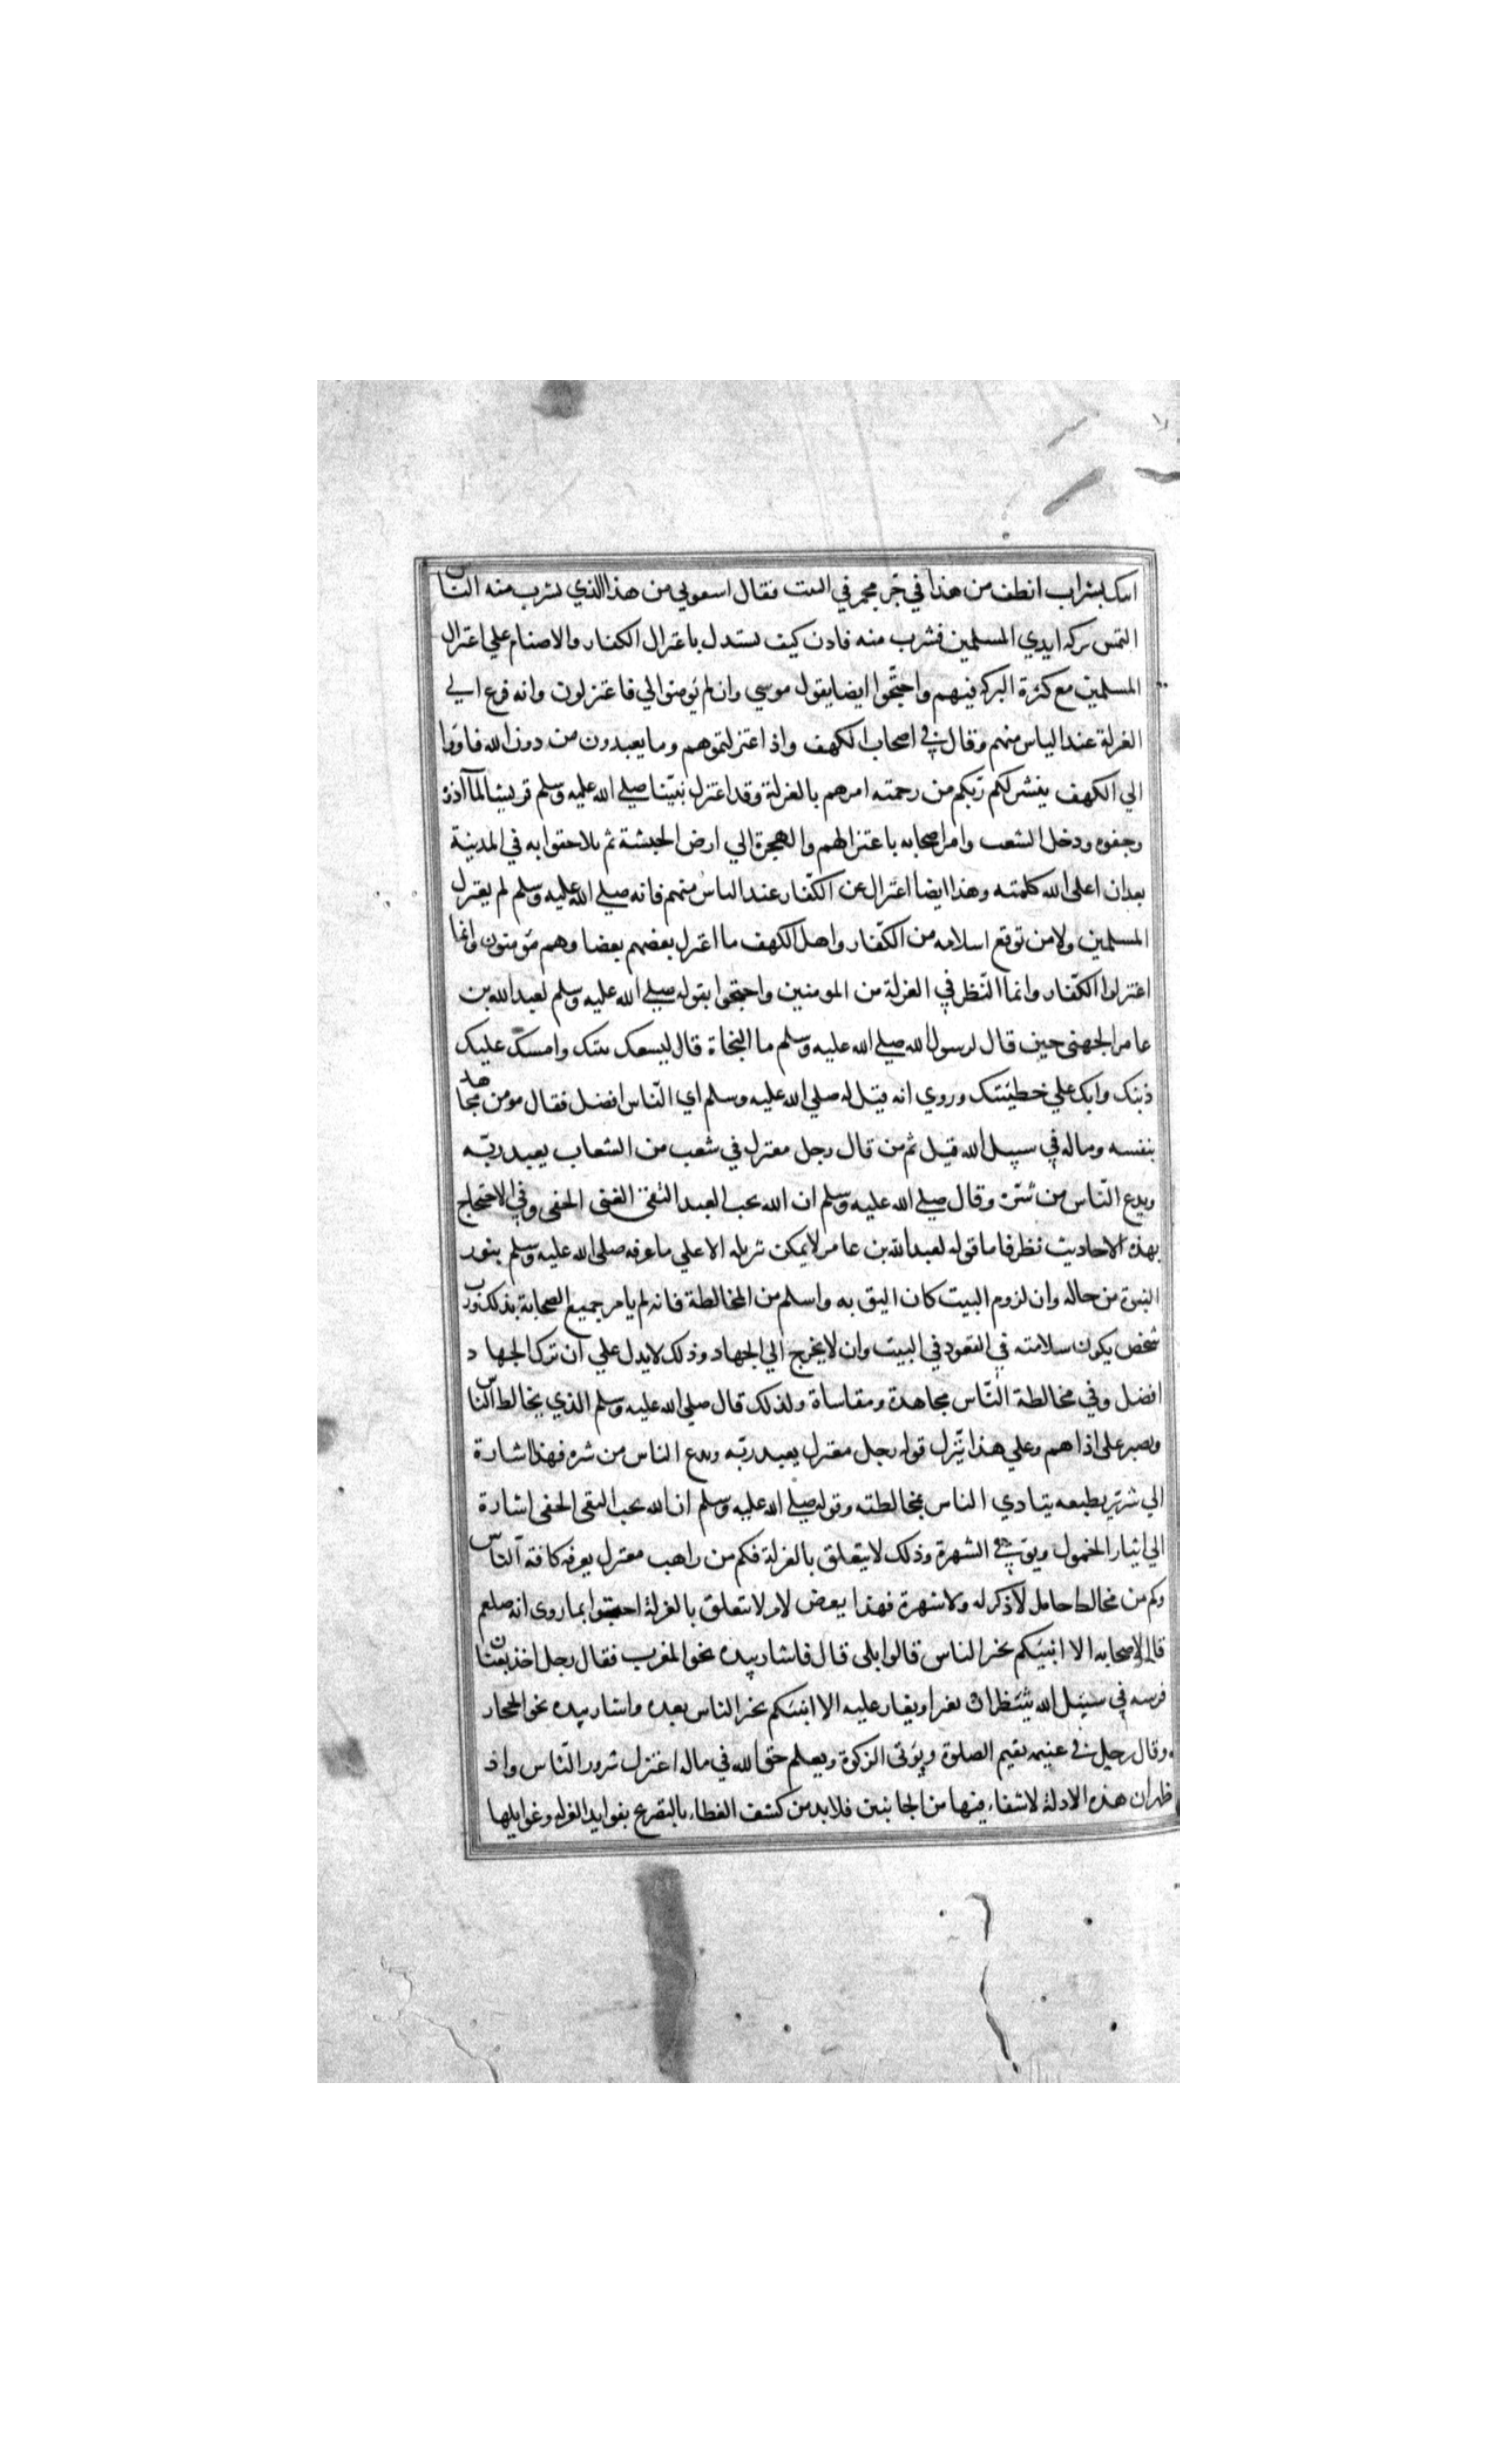 اتيك بشراب انظف من هذا في جر مخمر في البيت فقال اسقوني من هذا الذي يشرب منه الناس
التمس بركة ايدي المسلمين فشرب منه فاذن كيف يستدل باعتزال الكفار والاصنام علي اعتزال
المسلمين مع كثرة البركة فيهم واحتجوا ايضا بقول موسي وان لم تومنوا لي فاعتزلون وانه فزع الي
العزلة عند الياس منهم وقال في اصحاب الكهف واذ اعتزلتموهم وما يعبدون من دون الله فاووا
الي الكهف ينشر لكم ربكم من رحمته امرهم بالعزلة وقد اعتزل نبينا صلي الله عليه وسلم قريشا لما آذوه
وجفوه ودخل الشعب وامر اصحابه باعتزالهم والهجرة الي ارض الحبشة ثم تلاحقوا به في المدينة
بعد ان اعلى الله كلمته وهذا ايضا اعتزال عن الكفار عند الياس منهم فانه صلي الله عليه وسلم لم يعتزل
المسلمين ولا من توقع اسلامه من الكفار واهل الكهف ما اعتزل بعضهم بعضا وهم مومنون وانما
اعتزلوا الكفار وانما النظر في العزلة من المومنين واحتجوا بقوله صلي الله عليه وسلم لعبد الله بن
عامر الجهني حين قال لرسول الله صلي الله عليه وسلم ما النجاة قال ليسعك بيتك وامسك عليك
ذنبك وابك علي خطيئتك وروي انه قيل له صلي الله عليه وسلم اي الناس افضل فقال مومن مجاهد
بنفسه وماله في سبيل الله قيل ثم من قال رجل معتزل في شعب من الشعاب يعبد ربه
ويدع الناس من شره وقال صلي الله عليه وسلم ان الله يحب العبد التقي الغني الخفي وفي الاحتجاج
بهذه الاحاديث نظر فاما قوله لعبد الله بن عامر لا يمكن تنزيله الا علي ما عرفه صلي الله عليه وسلم بنور
النبوة من حاله وان لزوم البيت كان اليق به واسلم من المخالطة فانه لم يامر جميع الصحابة بذلك ورب
شخص يكون سلامته في القعود في البيت وان لا يخرج الي الجهاد وذلك لا يدل علي ان ترك الجهاد
افضل وفي مخالطة الناس مجاهدة ومقاساة ولذلك قال صلي الله عليه وسلم الذي يخالط الناس
ويصبر على اذاهم وعلي هذا ينزل قوله رجل معتزل يعبد ربه ويدع الناس من شره فهذا اشارة
الي شرير بطبعه يتادي الناس بمخالطته وقوله صلي الله عليه وسلم ان الله يحب التقي الخفي اشارة
الي ايثار الخمول ويوقي الشهرة وذلك لا يتعلق بالعزلة فكم من راهب معتزل يعرفه كافة الناس
وكم من مخالط خامل لا ذكر له ولا شهرة فهذا يعرض لامر لا يتعلق بالعزلة احتجوا بما روى انه صلعم
قال لاصحابه الا انبيكم بخير الناس قالوا بلى قال فاشار بيده نحو المغرب فقال رجل اخذ بعنان
فرسه في سبيل الله ينتظر ان يغير او يغار عليه الا انبيكم بخير الناس بعده واشار بيده نحو الحجاز
وقال رجل في غنيمه يقيم الصلوة ويوتى الزكوة ويعلم حق الله في ماله اعتزل شرور الناس واذ
ظهر ان هذه الادلة لا شفاء فيها من الجانبين فلا بد من كشف الغطاء بالتصريح بفوايد العزلة وغوايلها